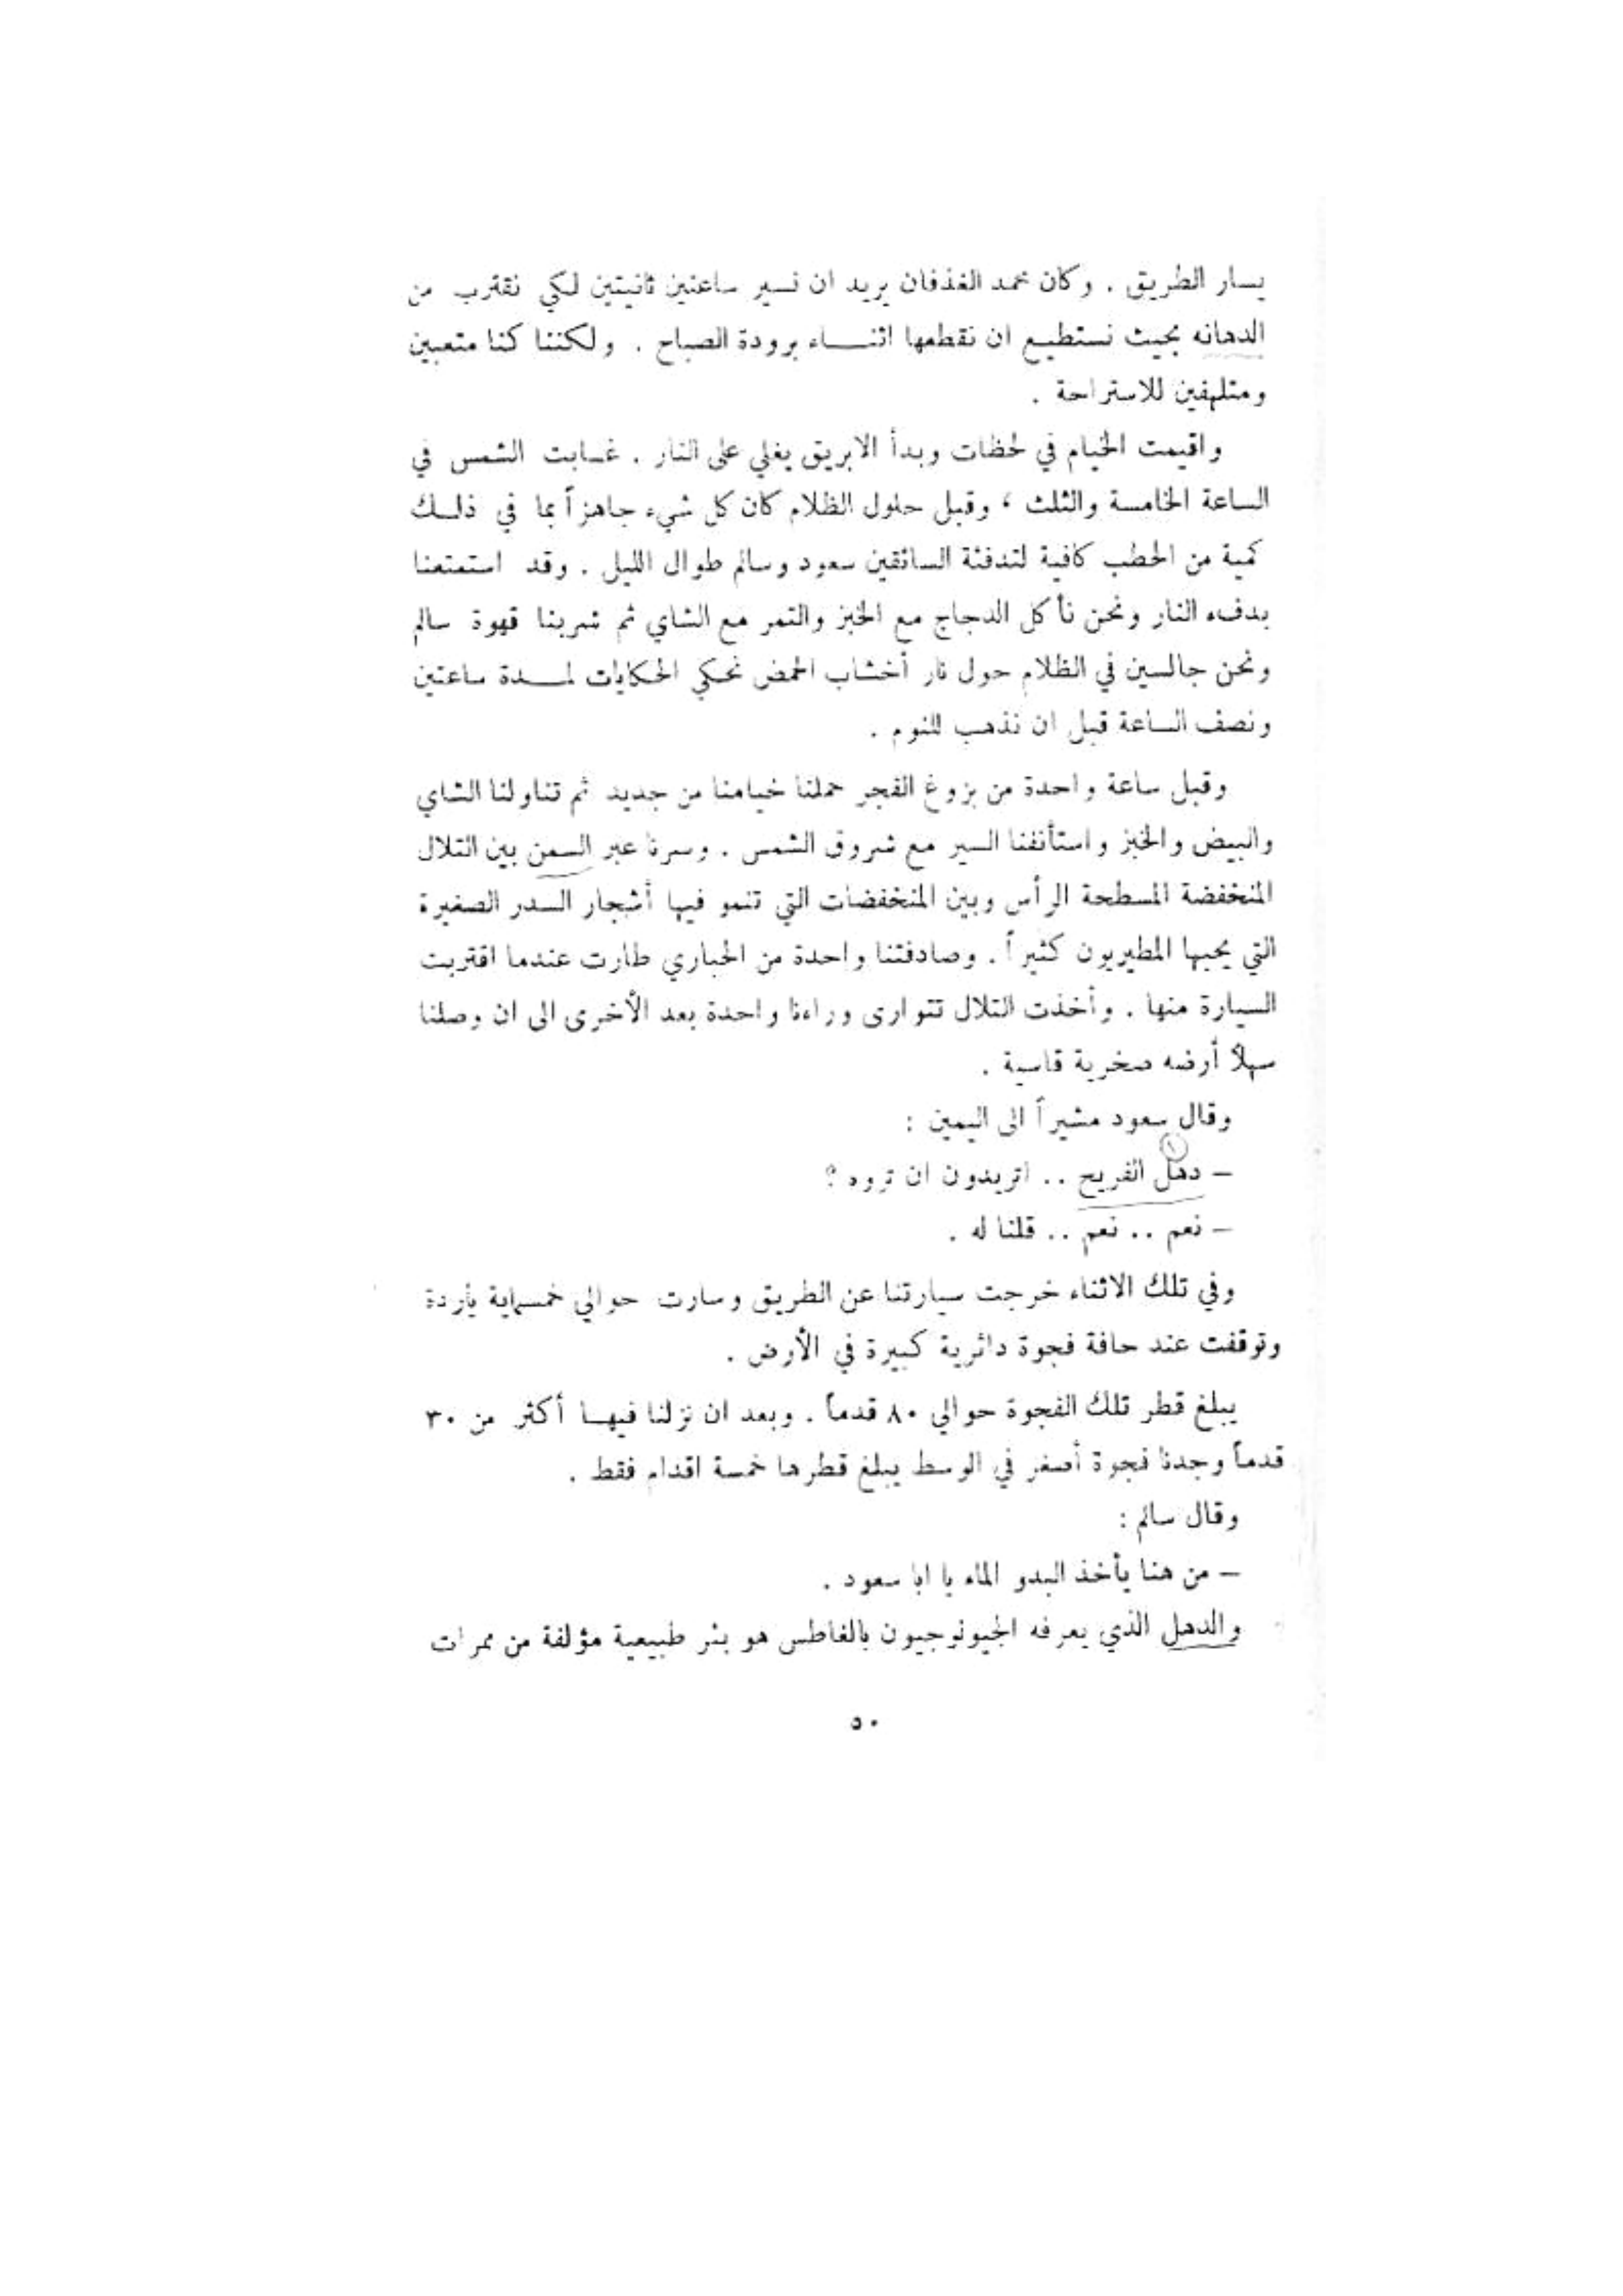 يسار الطريق . وكان محمد الغذفان يريد ان نسير ساعتين ثانيتين لكي نقترب من
الدهانه بحيث نستطيع ان نقطعها اثنـــاء برودة الصباح . ولكننا كنا متعبين
ومتلهفين للاستراحة .
واقيمت الخيام في لحظات وبدأ الابريق يغلي على النار . غـابت الشمس في
الساعة الخامسة والثلث ، وقبل حلول الظلام كان كل شيء جاهزاً بما في ذلـك
كمية من الحطب كافية لتدفئة السائقين سعود وسالم طوال الليل . وقد استمتعنا
بدفء النار ونحن نأكل الدجاج مع الخبز والتمر مع الشاي ثم شربنا قهوة سالم
ونحن جالسين في الظلام حول نار أخشاب الحمض نحكي الحكايات لمـــدة ساعتين
ونصف الساعة قبل ان نذهب للنوم .
وقبل ساعة واحدة من بزوغ الفجر حملنا خيامنا من جديد ثم تناولنا الشاي
والبيض والخبز واستأنفنا السير مع شروق الشمس . وسرنا عبر السمن بين التلال
المنخفضة المسطحة الرأس وبين المنخفضات التي تنمو فيها أشجار السدر الصغيرة
التي يحبها المطيريون كثيراً . وصادفتنا واحدة من الحباري طارت عندما اقتربت
السيارة منها . وأخذت التلال تتوارى وراءنا واحدة بعد الأخرى الى ان وصلنا
سهلاً أرضه صخرية قاسية .
وقال سعود مشيراً الى اليمين :
– دهل الفريح .. اتريدون ان تروه ؟
– نعم .. نعم .. قلنا له .
وفي تلك الاثناء خرجت سيارتنا عن الطريق وسارت حوالي خمسماية ياردة
وتوقفت عند حافة فجوة دائرية كبيرة في الأرض .
يبلغ قطر تلك الفجوة حوالي ٨٠ قدماً . وبعد ان نزلنا فيهـا أكثر من ٣٠
قدماً وجدنا فجوة أصغر في الوسط يبلغ قطرها خمسة اقدام فقط .
وقال سالم :
– من هنا يأخذ البدو الماء يا ابا سعود .
والدهل الذي يعرفه الجيولوجيون بالغاطس هو بئر طبيعية مؤلفة من ممرات
٥٠